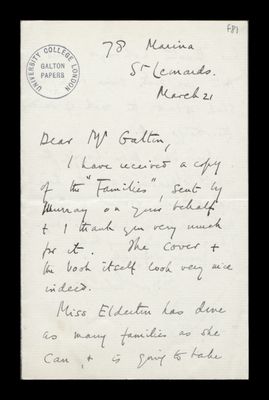 f81
UNIVERSITY COLLEGE LONDON
GALTON
PAPERS
78 Marina
St Leonards.
March 21
Dear Mr Galton,
I have received a copy
of the "Families", sent by
Murray on your behalf
& I thank you very much
for it. The cover &
the book itself look very nice
indeed.
Miss Elderton has done
as many families as she
can, & is going to take